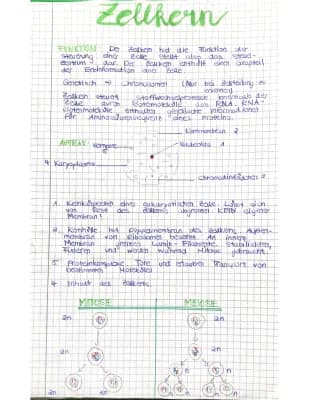 Zellkern
FUNKTION: Der Zellkern hat die Funktion der
Steuerung einer Zelle. Stellt also das Steuer-
zentrum dar. Der Zellkern enthält den Großteil
der Erbinformation einer Zelle.
Genetisch → Chromosomen (Nur bei Zellteilung zu
Zellkern steuert Stoffwechselprozesse innerhalb der
Zelle durch Botenmoleküle aus RNA. RNA-
Botenmoleküle enthalten Informationen
für Aminosäuresequenz eines Proteins.
Kernmembran 2
AUFBAU: Kernpore
Nucleolus 1
4 Karyoplasma
Chromatinfäden
1. Kernkörperchen einer eukaryotischen Zelle. Liegt
vom Rest des Zellkerns abgegrenzt. KEINE eigene
Membran!
2. Kernhülle mit Doppelmembran des Zellkerns. Außen-
membran von Ribosomen besetzt. An innere
Membran grenzen Lamin-Filamente. Stabilisieren,
fixieren und werden während Mitose gebraucht.
3. Proteinkomplexe. Tore, und erlauben Transport von
bestimmten Molekülen
4. Inhalt des Zellkerns
MITOSE
MEIOSE
2n
2n
2n
2n
n
n
2n
2n
n
n